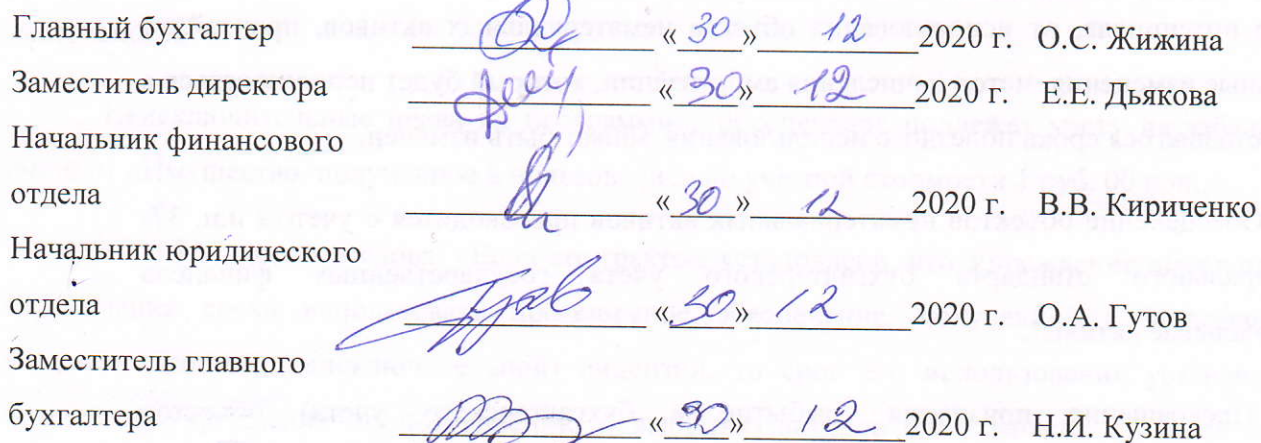 Главный бухгалтер «30» 12 2020 г. О.С. Жижина
Заместитель директора «30» 12 2020 г. Е.Е. Дьякова
Начальник финансового
отдела «30» 12 2020 г. В.В. Кириченко
Начальник юридического
отдела «30» 12 2020 г. О.А. Гутов
Заместитель главного
бухгалтера «30» 12 2020 г. Н.И. Кузина